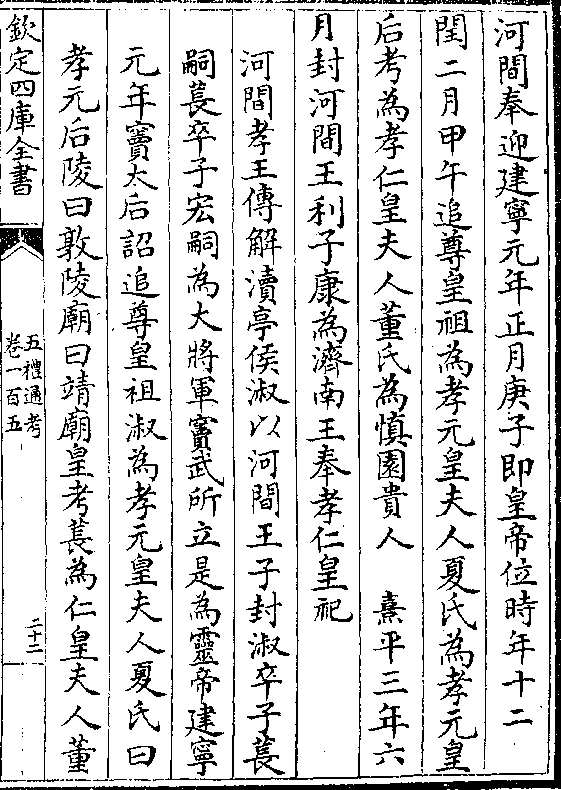 河間奉迎建寧元年正月庚子即皇帝位時年十二
閏二月甲午追尊皇祖為孝元皇夫人夏氏為孝元皇
后考為孝仁皇夫人董氏為慎園貴人　熹平三年六
月封河間王利子康為濟南王奉孝仁皇祀
河間孝王傳解瀆亭侯淑以河間王子封淑卒子萇
嗣萇卒子宏嗣為大將軍竇武所立是為靈帝建寧
元年竇太后詔追尊皇祖淑為孝元皇夫人夏氏曰
孝元后陵曰敦陵廟曰靖廟皇考萇為仁皇夫人董
欽定四庫全書
五禮通考
卷一百五
二十二